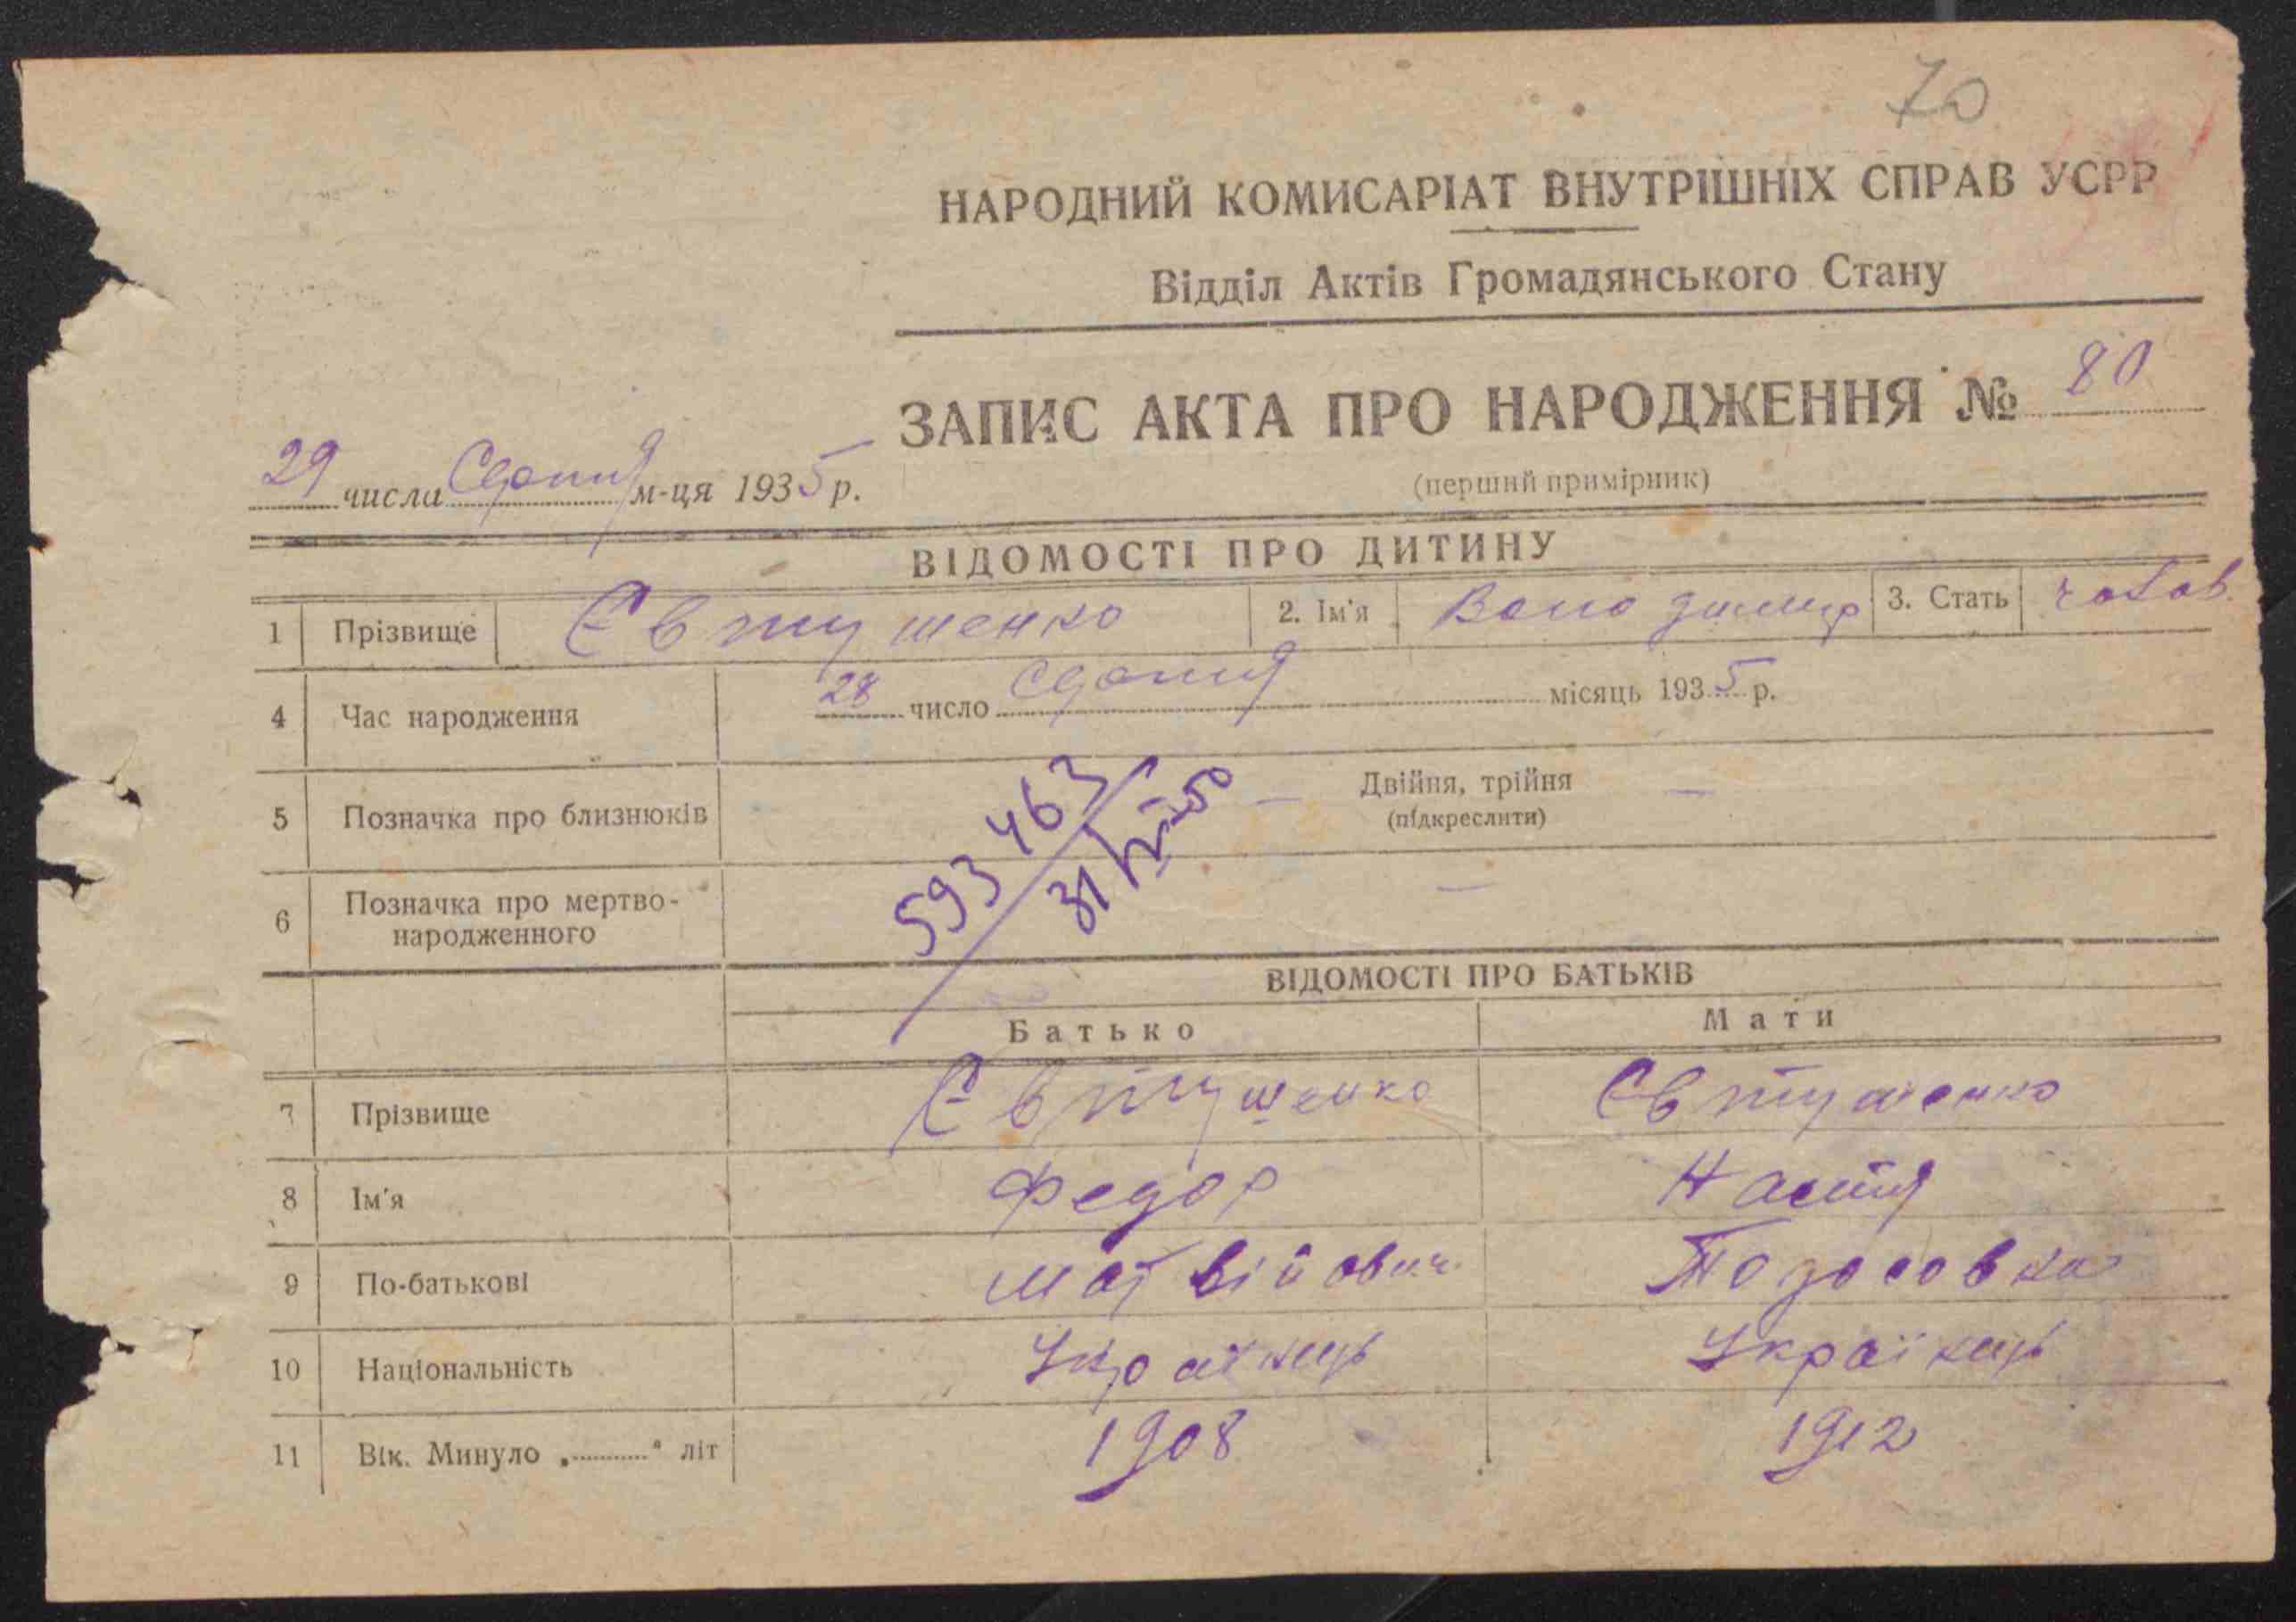 70
НАРОДНИЙ КОМИСАРІАТ ВНУТРІШНІХ СПРАВ УСРР
Відділ Актів Громадянського Стану
ЗАПИС АКТА ПРО НАРОДЖЕННЯ № 80
(перший примірник)
29 числа Серпня м-ця 1935 р.
ВІДОМОСТІ ПРО ДИТИНУ
1 Прізвище Євтушенко 2. Ім'я Володимир 3. Стать чолов.
4 Час народження 28 число Серпня місяць 1935 р.
5 Позначка про близнюків — Двійня, трійня —
(підкреслити)
593463
31/VII-50
6 Позначка про мертво-
народженного —
ВІДОМОСТІ ПРО БАТЬКІВ
Батько Мати
7 Прізвище Євтушенко Євтушенко
8 Ім'я Федор Настя
9 По-батькові Матвійович
10 Національність Українець Українець
11 Вік. Минуло „..........“ літ 1908 1912